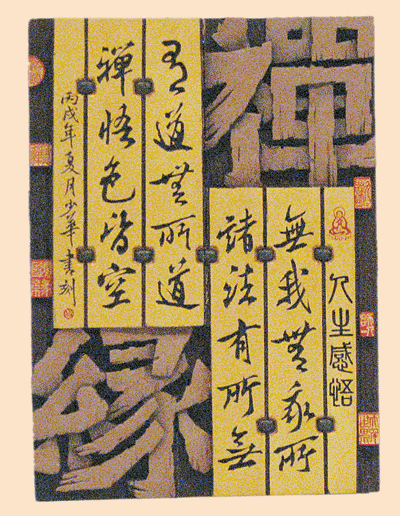 禪
人生感悟
無我無我所
諸法有所無
有道無所道
禪悟色皆空
丙戌年夏月少華書刻
緣